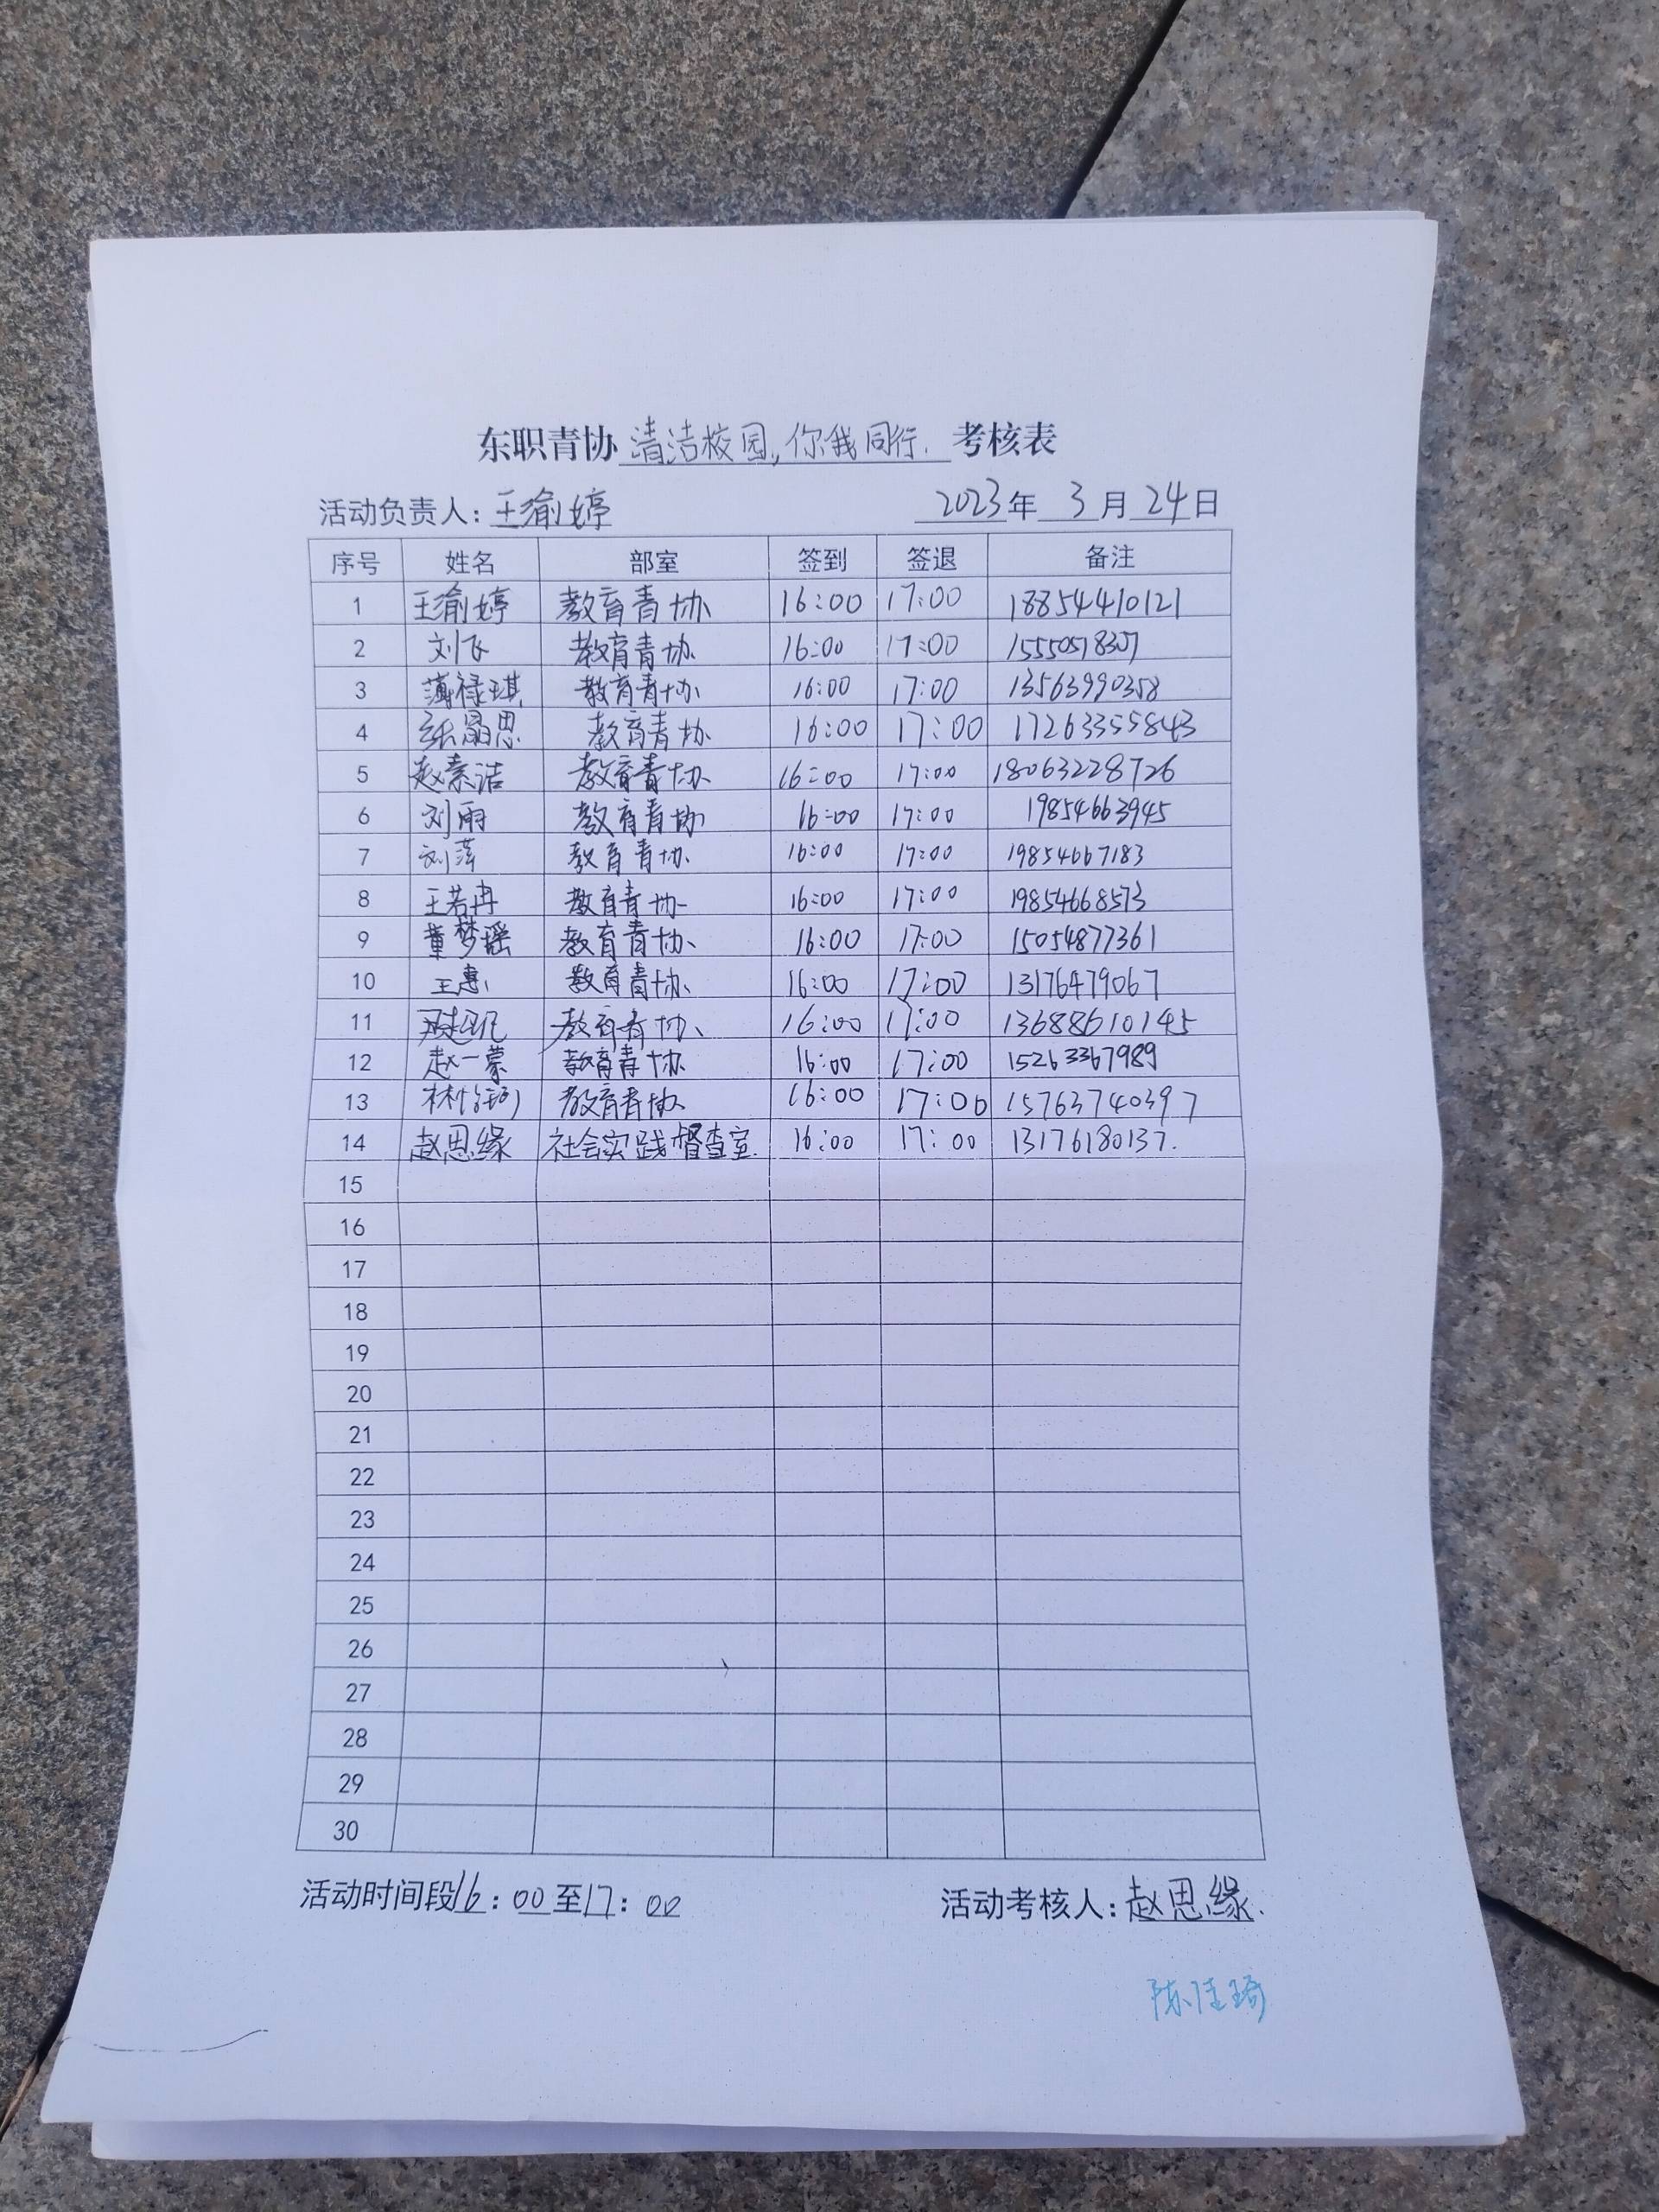 东职青协清洁校园,你我同行.考核表
活动负责人:王渝婷 2023年3月24日
序号 姓名 部室 签到 签退 备注
1 王渝婷 教育青协 16:00 17:00 18854410121
2 刘飞 教育青协 16:00 17:00
3 薄禄琪 教育青协 16:00 17:00 13563990358
4 教育青协 16:00 17:00 17263355843
5 赵素洁 教育青协 16:00 17:00 18063228726
6 刘雨 教育青协 16:00 17:00 19854663945
7 刘萍 教育青协 16:00 17:00 19854667183
8 王若冉 教育青协 16:00 17:00 19854668573
9 董梦瑶 教育青协 16:00 17:00 15054877361
10 王惠 教育青协 16:00 17:00 13176479067
11 教育青协 16:00 17:00 13688610145
12 赵一蒙 教育青协 16:00 17:00 15263367989
13 教育青协 16:00 17:00 15763740397
14 赵思缘 社会实践督查室. 16:00 17:00 13176180137.
15
16
17
18
19
20
21
22
23
24
25
26
27
28
29
30
活动时间段16:00至17:00 活动考核人:赵思缘.
陈佳琦